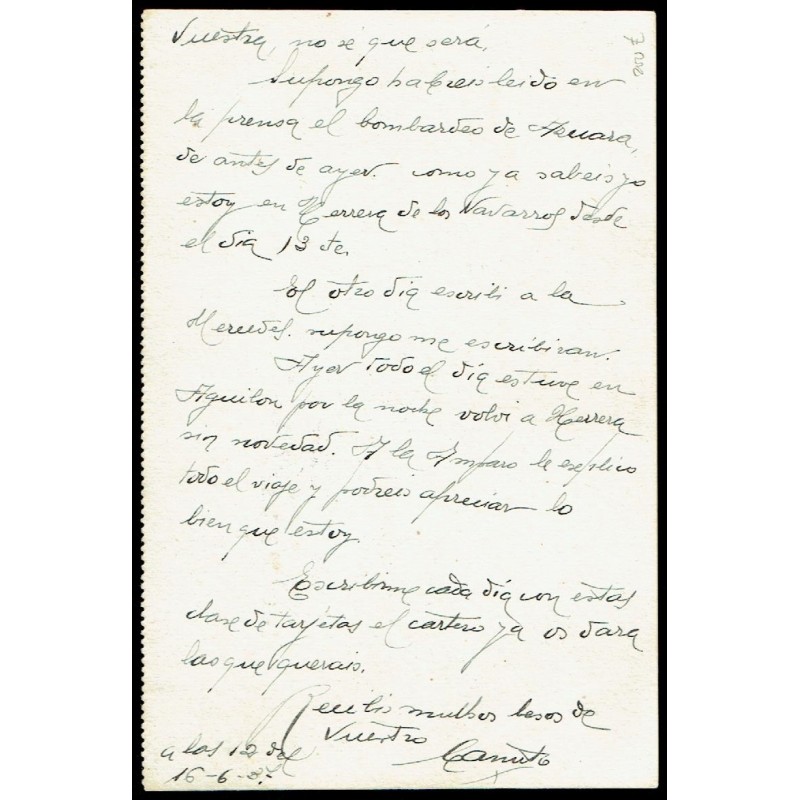 Vuestra, no se que será.
Supongo habreis leido en
la prensa el bombardeo de Azuara,
de antes de ayer. como ya sabeis yo
estoy en Herrera de los Navarros desde
el dia 13 te.
El otro dia escribi a la
Mercedes. supongo me escribiran.
Ayer todo el dia estuve en
Aguilon por la noche volvi a Herrera
sin novedad. A la Amparo le explico
todo el viaje y podreis apreciar lo
bien que estoy.
Escribirme cada dia con estas
clase de tarjetas el cartero ya os dara
las que querais.
Recibis muchos besos de
Vuestro
Canuto
a las 12 del
16-6-37